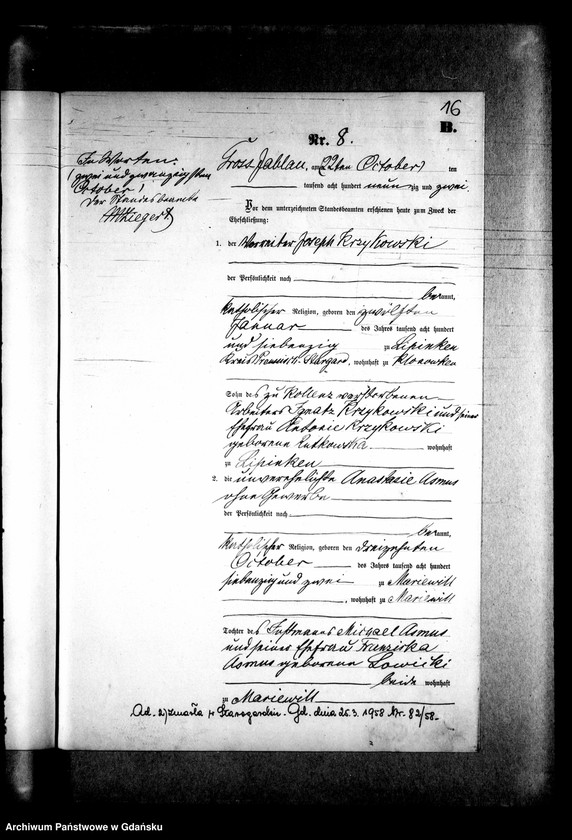 16
B.
Nr. 8.
In Worten:
(zwei und zwanzigsten
October)
Der Standesbeamte
Gross Jablau, am 22ten October ten
tausend acht hundert neunzig und zwei.
Vor dem unterzeichneten Standesbeamten erschienen heute zum Zweck der
Eheschließung:
1. der Vorreiter Joseph Krzykowski
der Persönlichkeit nach
bekannt,
katholischer Religion, geboren den zwölften
Januar des Jahres tausend acht hundert
und siebenzig zu Lipinken
Kreis Preussisch Stargard, wohnhaft zu Klonowken
Sohn des zu Kollenz verstorbenen
Arbeiters Ignatz Krzykowski und seiner
Ehefrau Antonie Krzykowski
geborene Rutkowska wohnhaft
zu Lipinken
2. die unverehelichte Anastasie Asmus
ohne Gewerbe
der Persönlichkeit nach
bekannt,
katholischer Religion, geboren den dreizehnten
October des Jahres tausend acht hundert
siebenzig und zwei zu Mariewill
, wohnhaft zu Mariewill
Tochter des Instmanns Michael Asmus
und seiner Ehefrau Franziska
Asmus geborene Lowicki
beide wohnhaft
zu Mariewill
Ad. 2) zmarła w Starogardzie-Gd. dnia 25.3.1958 Nr. 82/58.
2
Archiwum Państwowe w Gdańsku